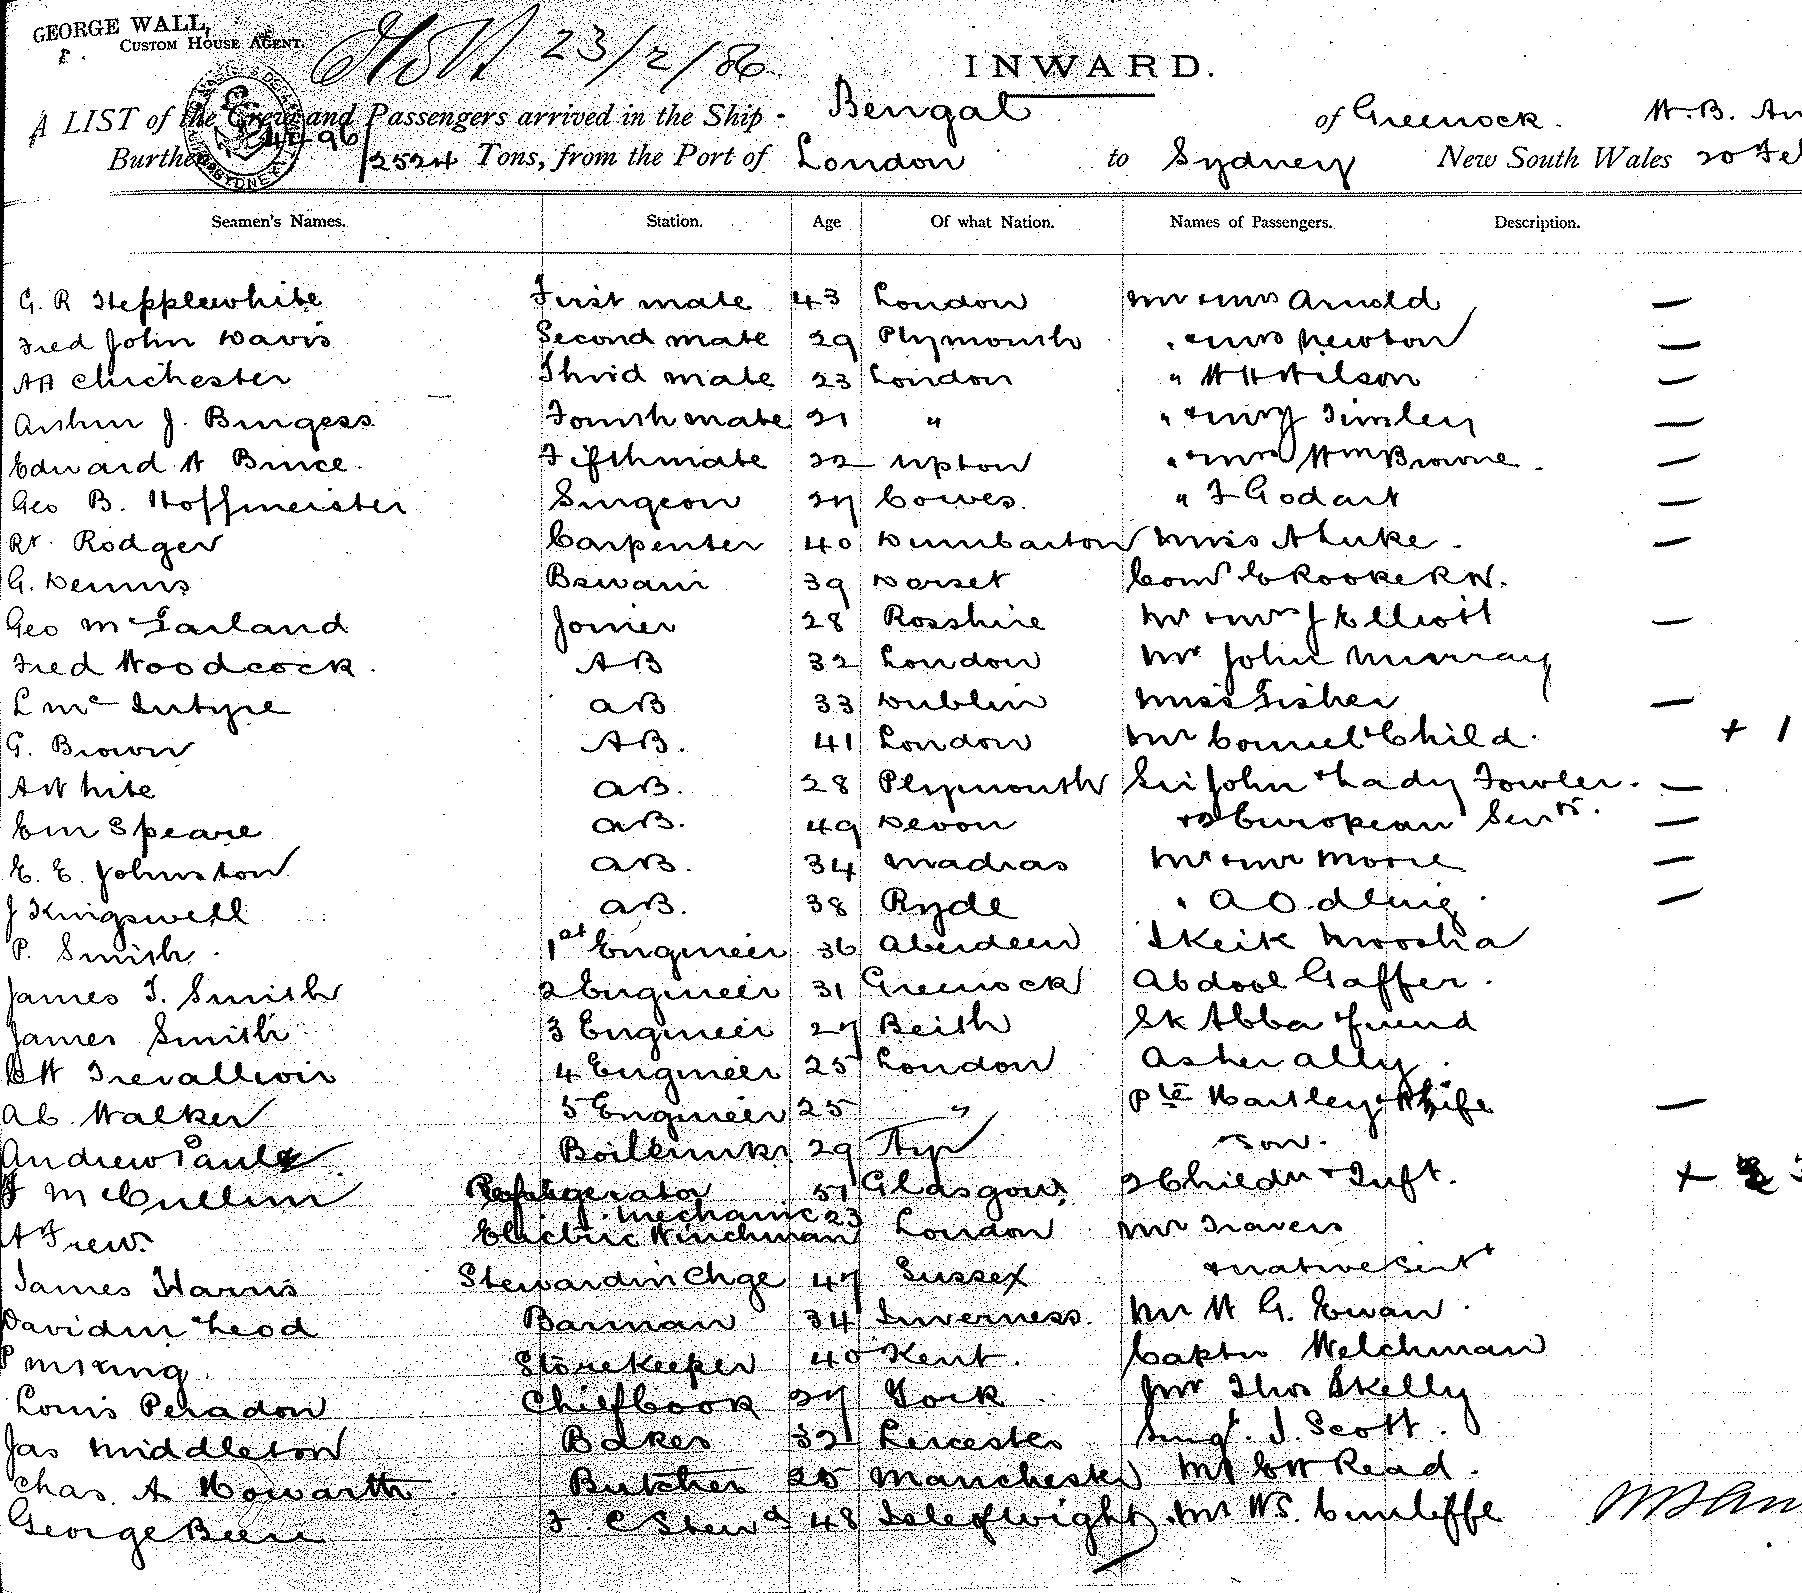 GEORGE WALL,
CUSTOM HOUSE AGENT.
23/2/86
INWARD.
A LIST of the Crew and Passengers arrived in the Ship - Bengal of Greenock. W.B. An
Burthen 2524 Tons, from the Port of London to Sydney New South Wales 20 Fe
Seamen's Names. Station. Age Of what Nation. Names of Passengers. Description.
G. R Hepplewhite First mate 43 London Mr & Mrs Arnold —
Fred John Davis Second mate 29 Plymouth " & Mrs Newton —
AA Chichester Third mate 23 London " W H Wilson —
Arthur J. Burgess Fourth mate 21 " " & Mrs Tinsley —
Edward A Bruce. Fifth mate 22 Upton " & Mrs Wm Browne. —
Geo B. Hoffmeister Surgeon 27 Cowes. " F Godart —
Rt. Rodger Carpenter 40 Dumbarton Miss A Luke. —
G. Dennis Bswain 39 Dorset Comr C Rooke R.N.
Geo McFarland Joiner 28 Rosshire Mr & Mrs J Elliott —
Fred Woodcock. AB 32 London Mr John Murray
L McIntyre AB 33 Dublin Miss Fisher —
G. Brown AB. 41 London Mr & Child. + 1
A White AB. 28 Plymouth Sir John & Lady Fowler. —
Em Speare AB. 49 Devon & 2 European Servts. —
E. E. Johnston AB. 34 Madras Mr & Mrs Moore —
J Kingswell AB. 38 Ryde " A Odling. —
P. Smith. 1st Engineer 36 Aberdeen Skeik Moosha
James T. Smith 2 Engineer 31 Greenock Abdool Gaffer.
James Smith 3 Engineer 27 Beith Sk Abba & friend
W Trevallion 4 Engineer 25 London Asher ally.
A C. Walker 5 Engineer 25 " Pte Hartley & Wife —
Andrew Paul Boilermkr 29 Ayr son.
J McCullim Refrigerator 51 Glasgow, 2 Childn & Inft. +
mechanic 23
A Frew. Electric Winchman London Mr Travers
James Harris Steward in Chge 47 Sussex & native Servt
David McLeod Barman 34 Inverness. Mr W G. Ewan.
P M King. Storekeeper 40 Kent. Captn Welchman
Louis Peradon Chief Cook 27 York Mr Thos Skelly
Jas Middleton Baker 32 Leicester Sergt. J. Scott.
Chas. A Howarth. Butcher 25 Manchester Mr C W Read.
George Beere F. C Stewd 48 Isle of Wight Mr W S. Cunliffe